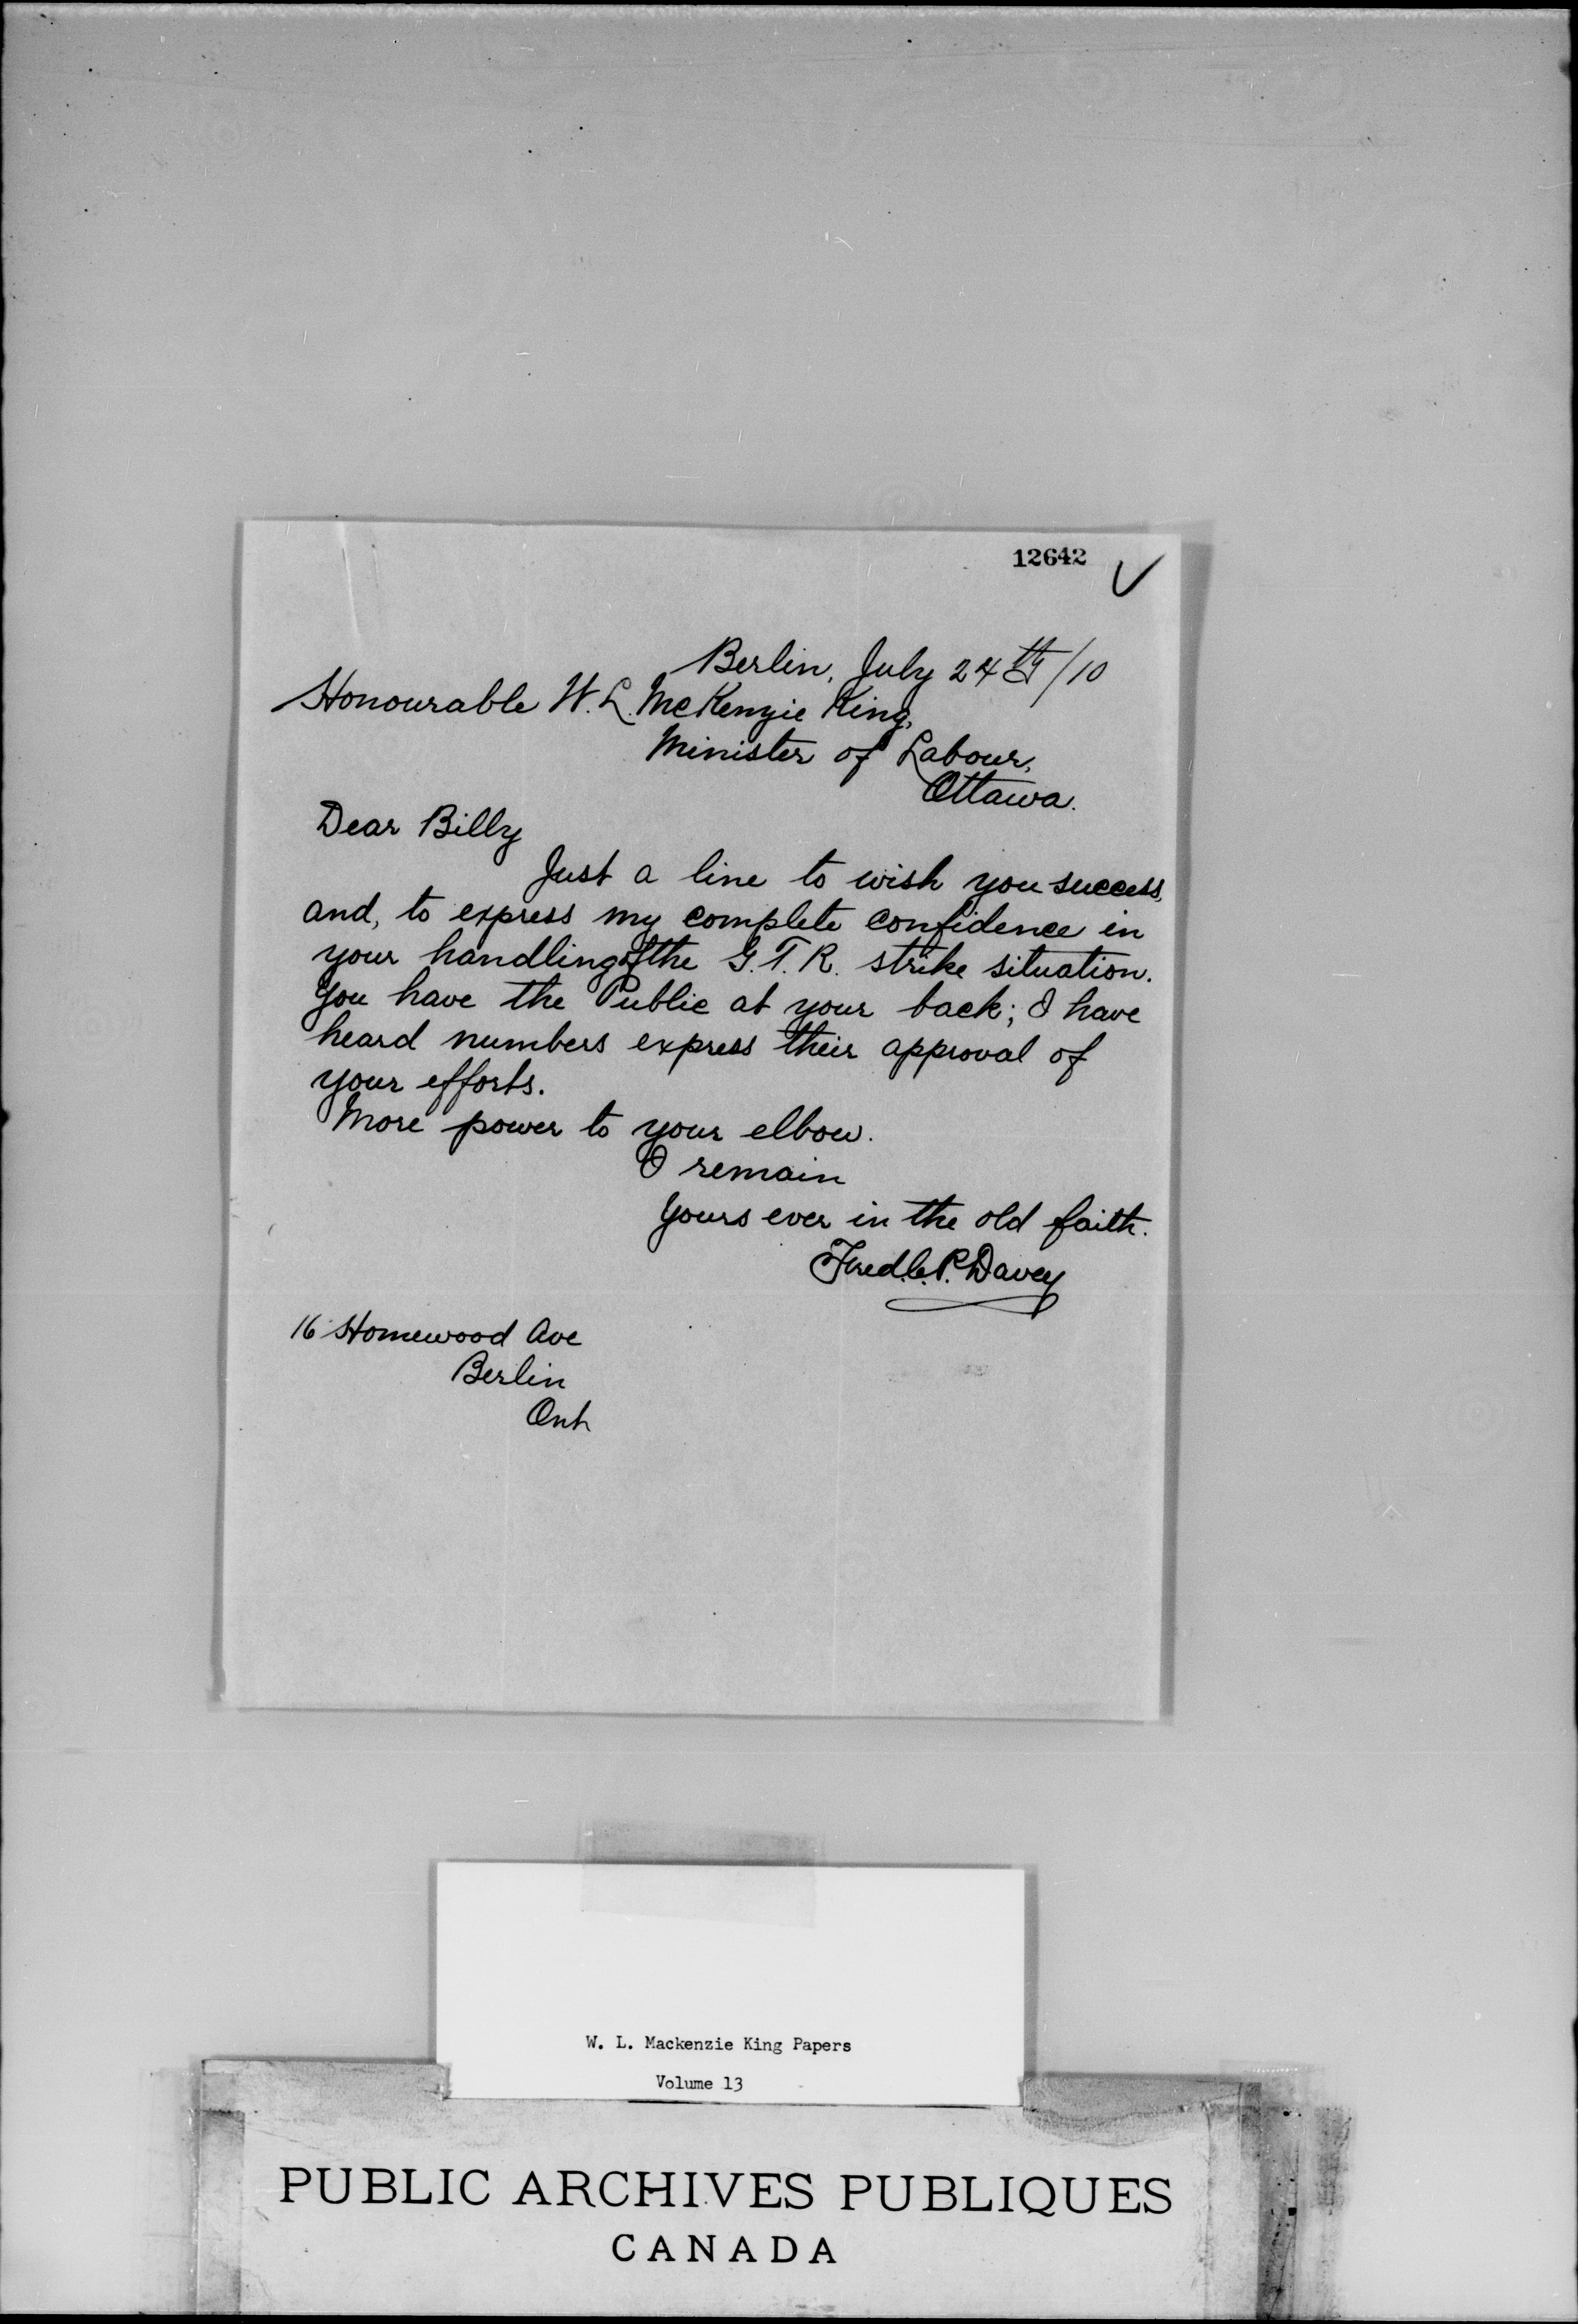 12642
Berlin, July 24th/10
Honourable W. L. McKenzie King,
Minister of Labour,
Ottawa.
Dear Billy
Just a line to wish you success,
and, to express my complete confidence in
your handling of the G. T. R. strike situation.
You have the Public at your back; I have
heard numbers express their approval of
your efforts.
More power to your elbow.
I remain
Yours ever in the old faith.
Fred. C. P. Davey
16 Homewood Ave
Berlin
Ont
W. L. Mackenzie King Papers
Volume 13
PUBLIC ARCHIVES PUBLIQUES
CANADA